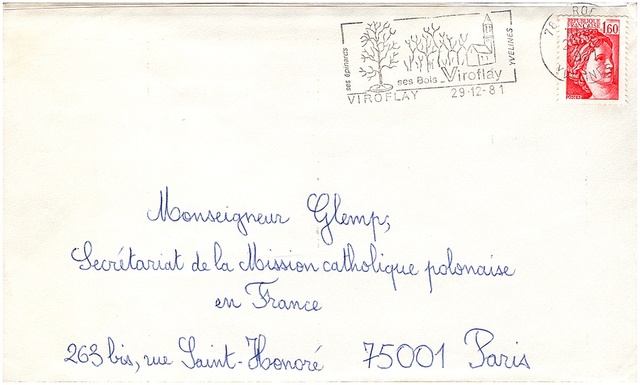 ses épinards
ses Bois
Viroflay
YVELINES
VIROFLAY 29-12-81
78
REPUBLIQUE
FRANÇAISE
1,60
Monseigneur Glemp;
Secrétariat de la Mission catholique polonaise
en France
263 bis, rue Saint-Honoré 75001 Paris